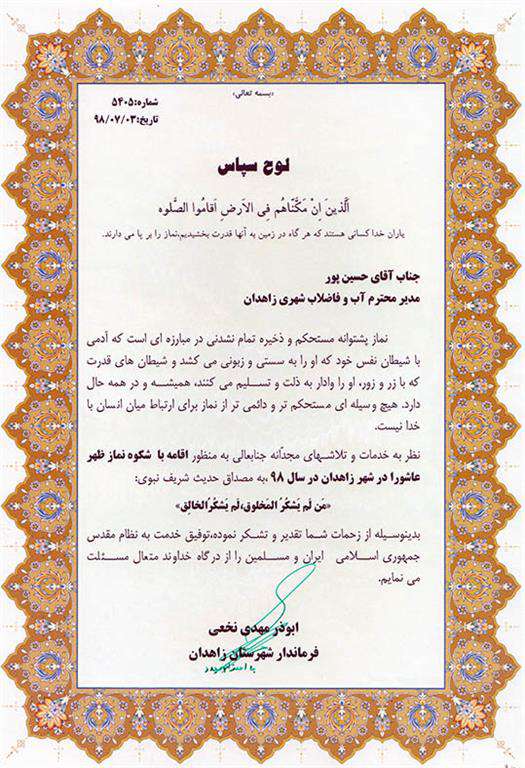 «بسمه تعالی»
شماره:۵۴۰۵
تاریخ:۹۸/۰۷/۰۳
لوح سپاس
اَلَّذینَ اِنْ مَکَّنّاهُم فِی الاَرضِ اَقامُوا الصَّلوه
یاران خدا کسانی هستند که هر گاه در زمین به آنها قدرت بخشیدیم،نماز را بر پا می دارند.
جناب آقای حسین پور
مدیر محترم آب و فاضلاب شهری زاهدان
نماز پشتوانه مستحکم و ذخیره تمام نشدنی در مبارزه ای است که آدمی
با شیطان نفس خود که او را به سستی و زبونی می کشد و شیطان های قدرت
که با زر و زور، او را وادار به ذلت و تسلیم می کنند، همیشه و در همه حال
دارد. هیچ وسیله ای مستحکم تر و دائمی تر از نماز برای ارتباط میان انسان با
خدا نیست.
نظر به خدمات و تلاشهای مجدّانه جنابعالی به منظور اقامه با شکوه نماز ظهر
عاشورا در شهر زاهدان در سال ۹۸ ،به مصداق حدیث شریف نبوی:
«مَن لَم یَشکُرُ المَخلوق،لَم یَشکُرُالخالِق»
بدینوسیله از زحمات شما تقدیر و تشکر نموده،توفیق خدمت به نظام مقدس
جمهوری اسلامی ایران و مسلمین را از درگاه خداوند متعال مسئلت
می نمایم.
ابوذر مهدی نخعی
فرماندار شهرستان زاهدان